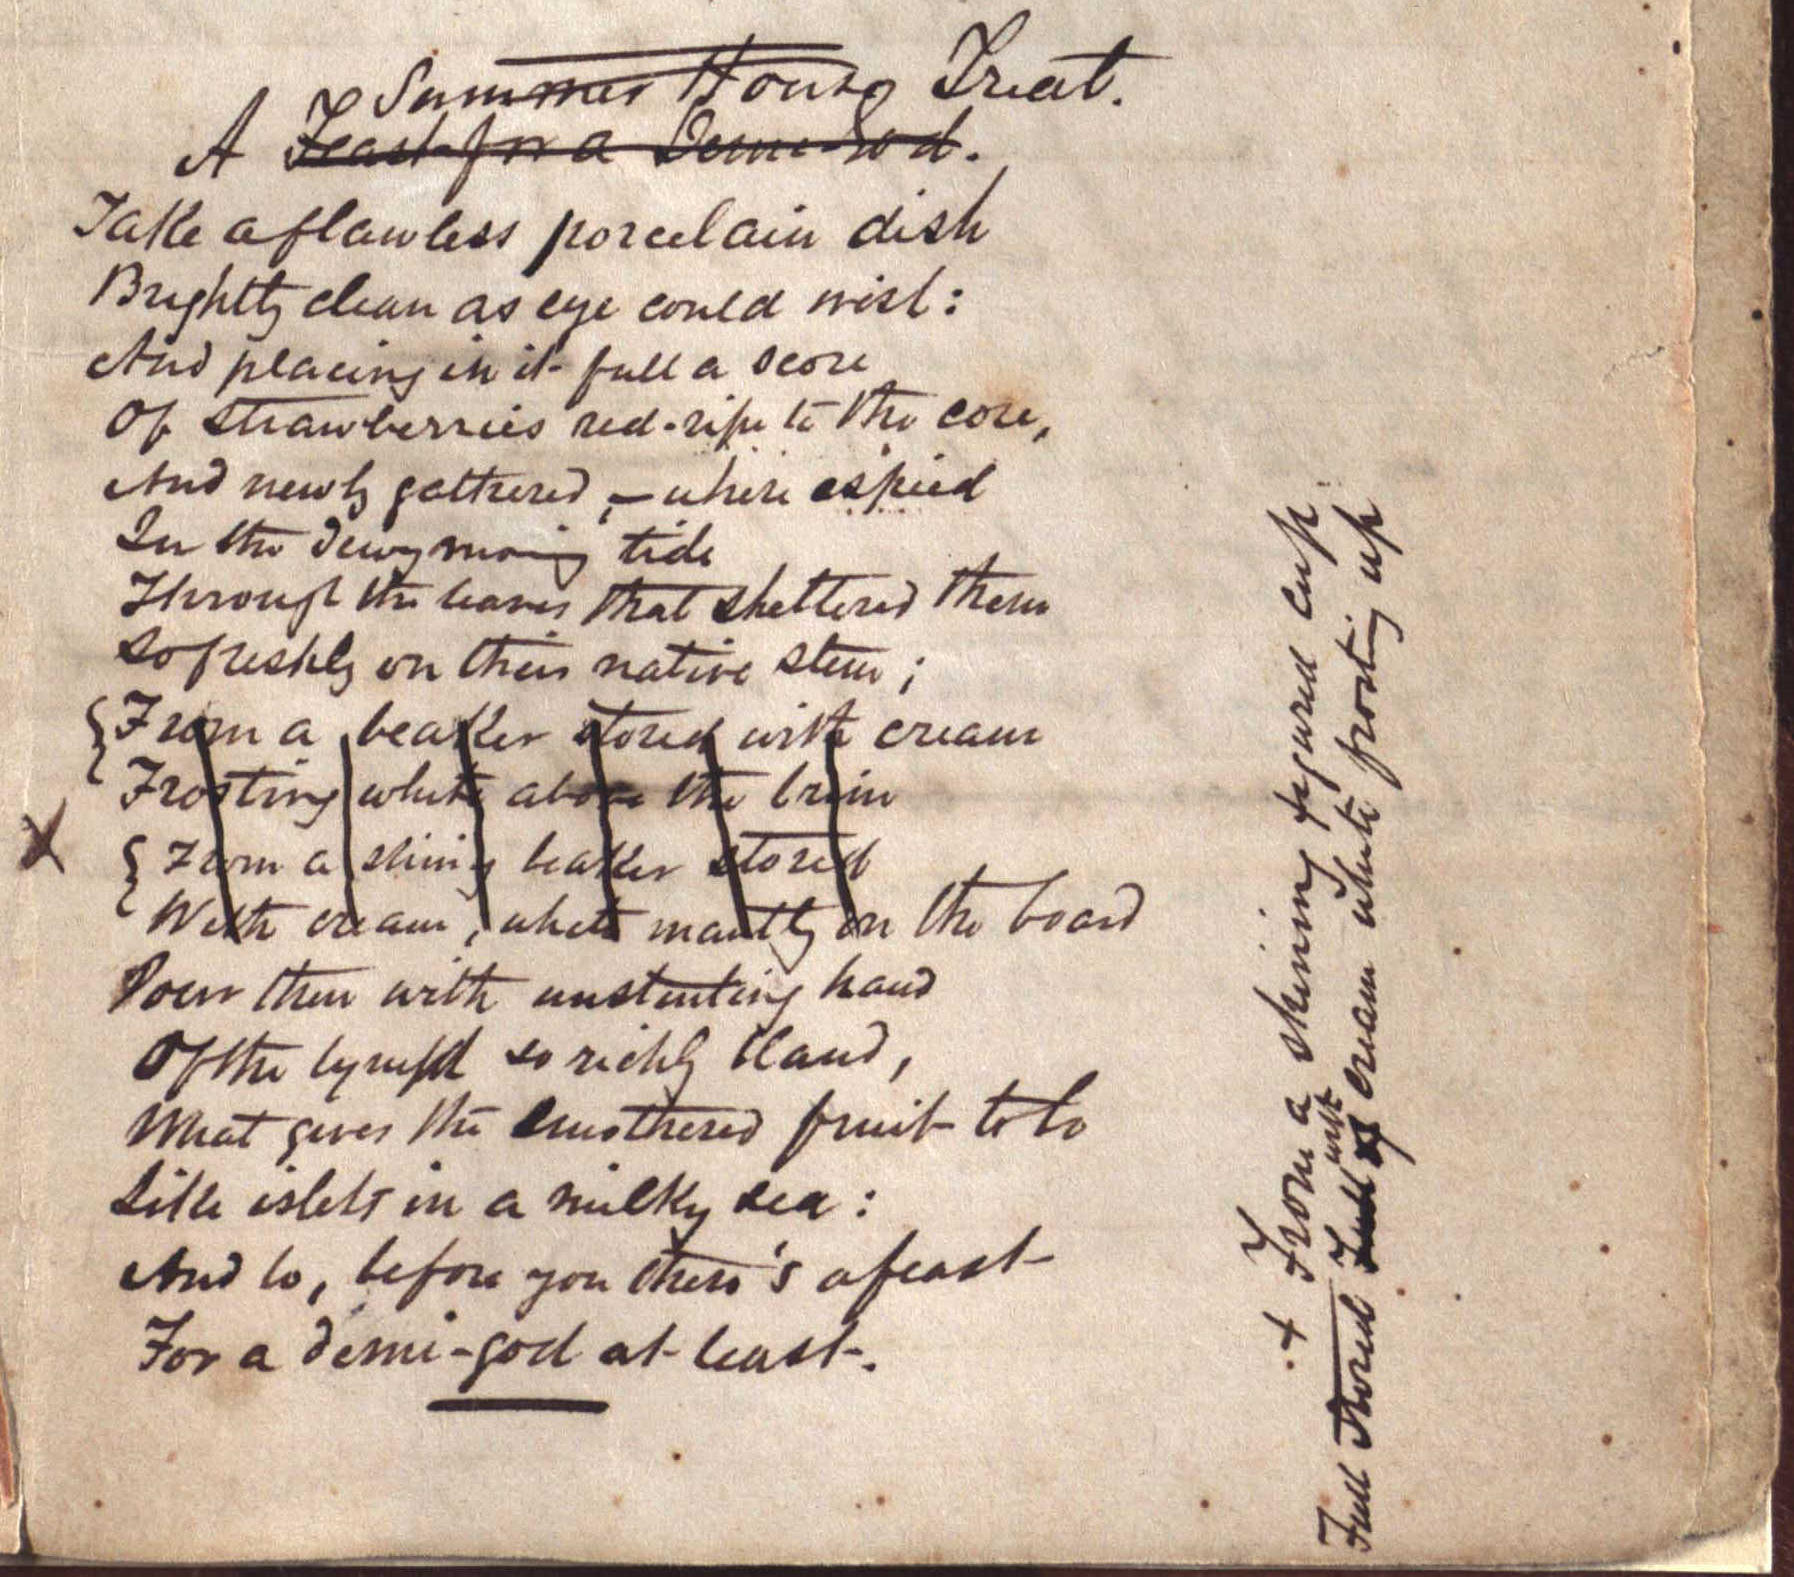 Summer House Treat.
A Feast for a Demi-God.
Take a flawless porcelain dish
Brightly clean as eye could wish:
And placing in it full a score
Of strawberries red-ripe to the core,
And newly gathered, — where espied
In the dewy morning tide
Through the leaves that sheltered them
So freshly on their native stem;
From a beaker stored with cream
Frosting white above the brim
X
From a shining beaker stored
With cream, white mantling on the board
Pour then with unstinting hand
Of the lymph so richly bland,
What gives the smothered fruit to be
Like islets in a milky sea:
And lo, before you there's a feast
For a demi-god at least.
+ From a shining figured cup
Full stored Full of with cream white frosting up